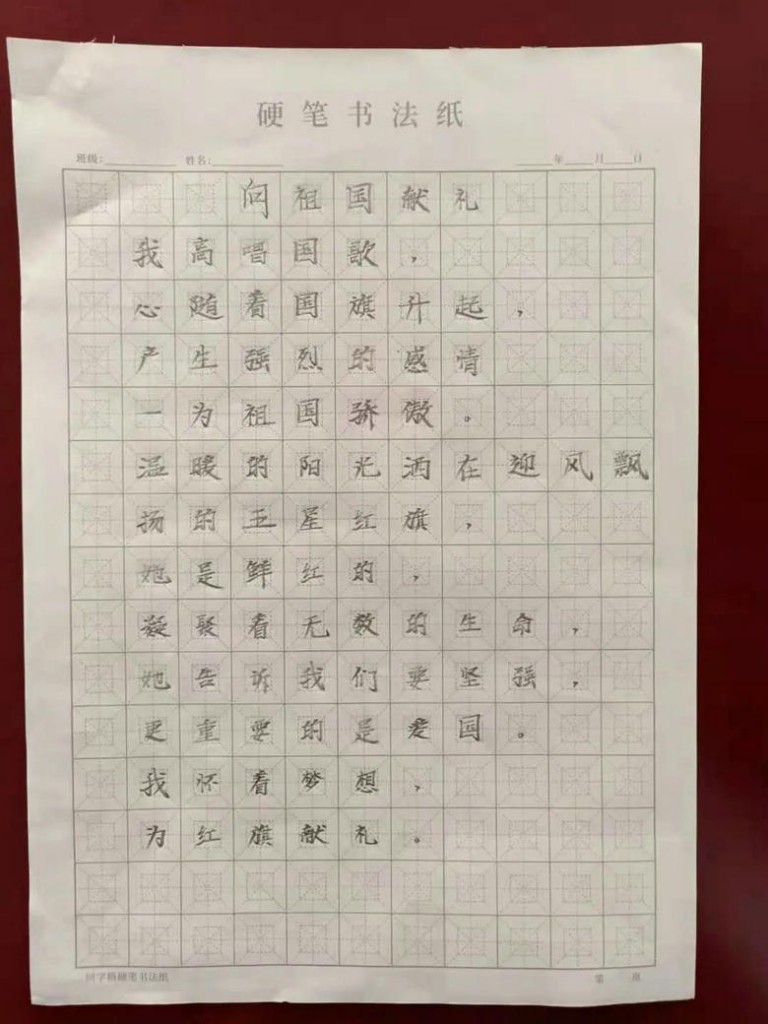 硬笔书法纸
班级: 姓名: 年 月 日
问祖国献礼
我高唱国歌，
心随看国旗升起，
产生强烈的感情
一为祖国骄傲。
温暖的阳光洒在迎风飘
扬的五星红旗，
她是鲜红的，
凝聚看无数的生命，
她告诉我们要坚强，
更重要的是爱国。
我怀看梦想，
为红旗献礼。
回字格硬笔书法纸 第 页